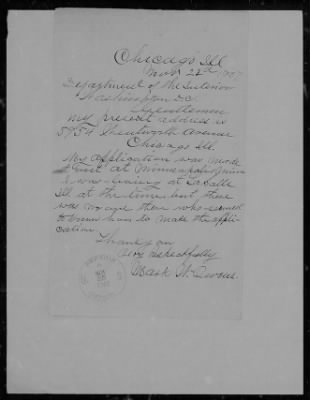 Chicago Ill
Nov. 22nd 1907
Department of the Interior
Washington D.C.
Gentlemen
My present address is
5754 Wentworth Avenue
Chicago Ill.
My application was made
out at Minneapolis
I was living at La Salle
Ill at the time but there
was no one there who seemed
to know how to make the appli-
cation.
Thank you
Very respectfully
Mark W.